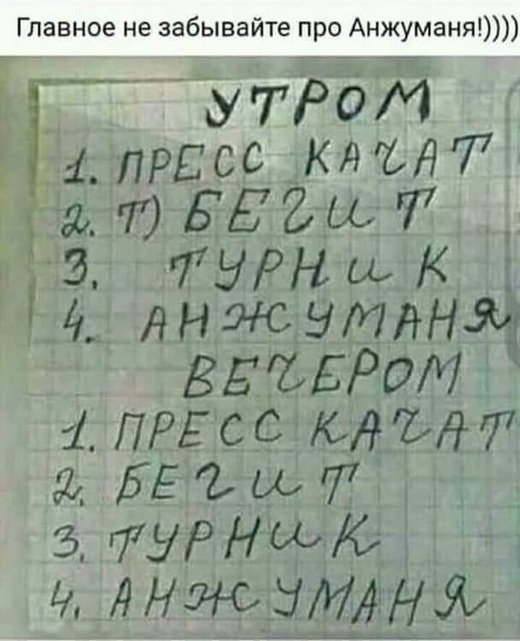 Главное не забывайте про Анжуманя!))))
УТРОМ
1. ПРЕСС КАЧАТ
2. Т) БЕГИТ
3. ТУРНИК
4. АНЖУМАНЯ
ВЕЧЕРОМ
1. ПРЕСС КАЧАТ
2. БЕГИТ
3. ТУРНИК
4. АНЖУМАНЯ